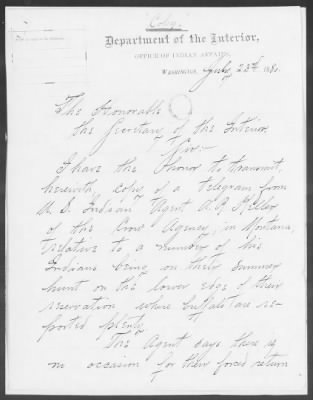 Copy.
Department of the Interior,
OFFICE OF INDIAN AFFAIRS,
WASHINGTON, July 23d 1880.
The Honorable
the Secretary of the Interior
Sir:-
I have the honor to transmit,
herewith, copy of a telegram from
U. S. Indian Agent A. R. Keller
of the Crow Agency, in Montana,
relative to a number of his
Indians being on their summer
hunt on the lower edge of their
reservation where buffalo are re-
ported plenty.
The Agent says there is
no occasion for their forced return